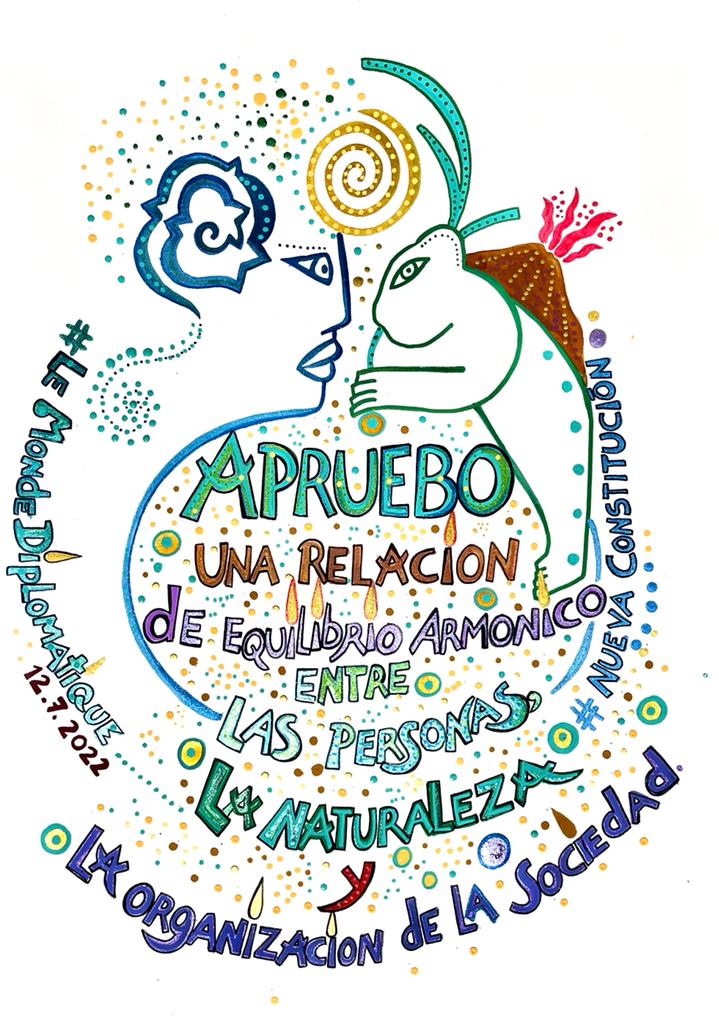 # LE MONDE DiPLOMATiQUE
12.7.2022
APRUEBO
UNA RELACiON
dE EQUiLibRiO ARMONiCO
ENTRE
LAS PERSONAS,
LA NATURALEZA
y
LA ORgANiZACiON dE LA SOCiEdAd
# NUEVA CONSTiTUCiÓN